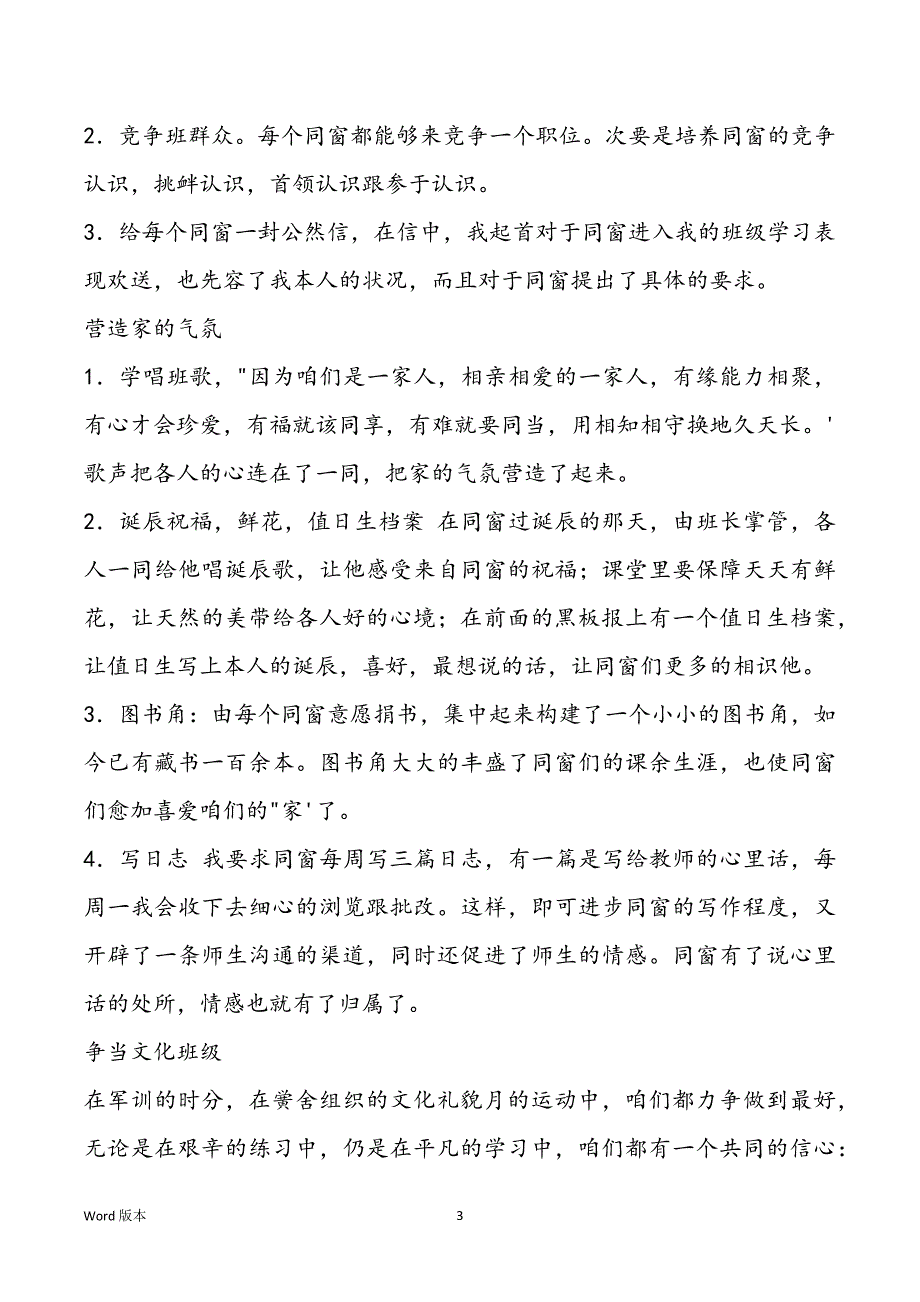 2．竞争班群众。每个同窗都能够来竞争一个职位。次要是培养同窗的竞争
认识，挑衅认识，首领认识跟参于认识。
3．给每个同窗一封公然信，在信中，我起首对于同窗进入我的班级学习表
现欢送，也先容了我本人的状况，而且对于同窗提出了具体的要求。
营造家的气氛
1．学唱班歌，"因为咱们是一家人，相亲相爱的一家人，有缘能力相聚，
有心才会珍爱，有福就该同享，有难就要同当，用相知相守换地久天长。'
歌声把各人的心连在了一同，把家的气氛营造了起来。
2．诞辰祝福，鲜花，值日生档案 在同窗过诞辰的那天，由班长掌管，各
人一同给他唱诞辰歌，让他感受来自同窗的祝福；课堂里要保障天天有鲜
花，让天然的美带给各人好的心境；在前面的黑板报上有一个值日生档案，
让值日生写上本人的诞辰，喜好，最想说的话，让同窗们更多的相识他。
3．图书角：由每个同窗意愿捐书，集中起来构建了一个小小的图书角，如
今已有藏书一百余本。图书角大大的丰盛了同窗们的课余生涯，也使同窗
们愈加喜爱咱们的"家'了。
4．写日志 我要求同窗每周写三篇日志，有一篇是写给教师的心里话，每
周一我会收下去细心的浏览跟批改。这样，即可进步同窗的写作程度，又
开辟了一条师生沟通的渠道，同时还促进了师生的情感。同窗有了说心里
话的处所，情感也就有了归属了。
争当文化班级
在军训的时分，在黉舍组织的文化礼貌月的运动中，咱们都力争做到最好，
无论是在艰辛的练习中，仍是在平凡的学习中，咱们都有一个共同的信心：
Word 版本
3